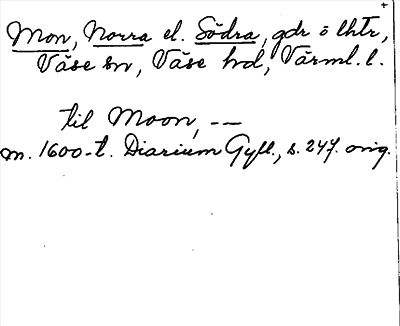 Mon, Norra el. Södra, gdr o lhtr,
Väse sn, Väse hd, Värml. l.
til Moon, --
m. 1600-t. Diarium Gyll., s. 247. orig.